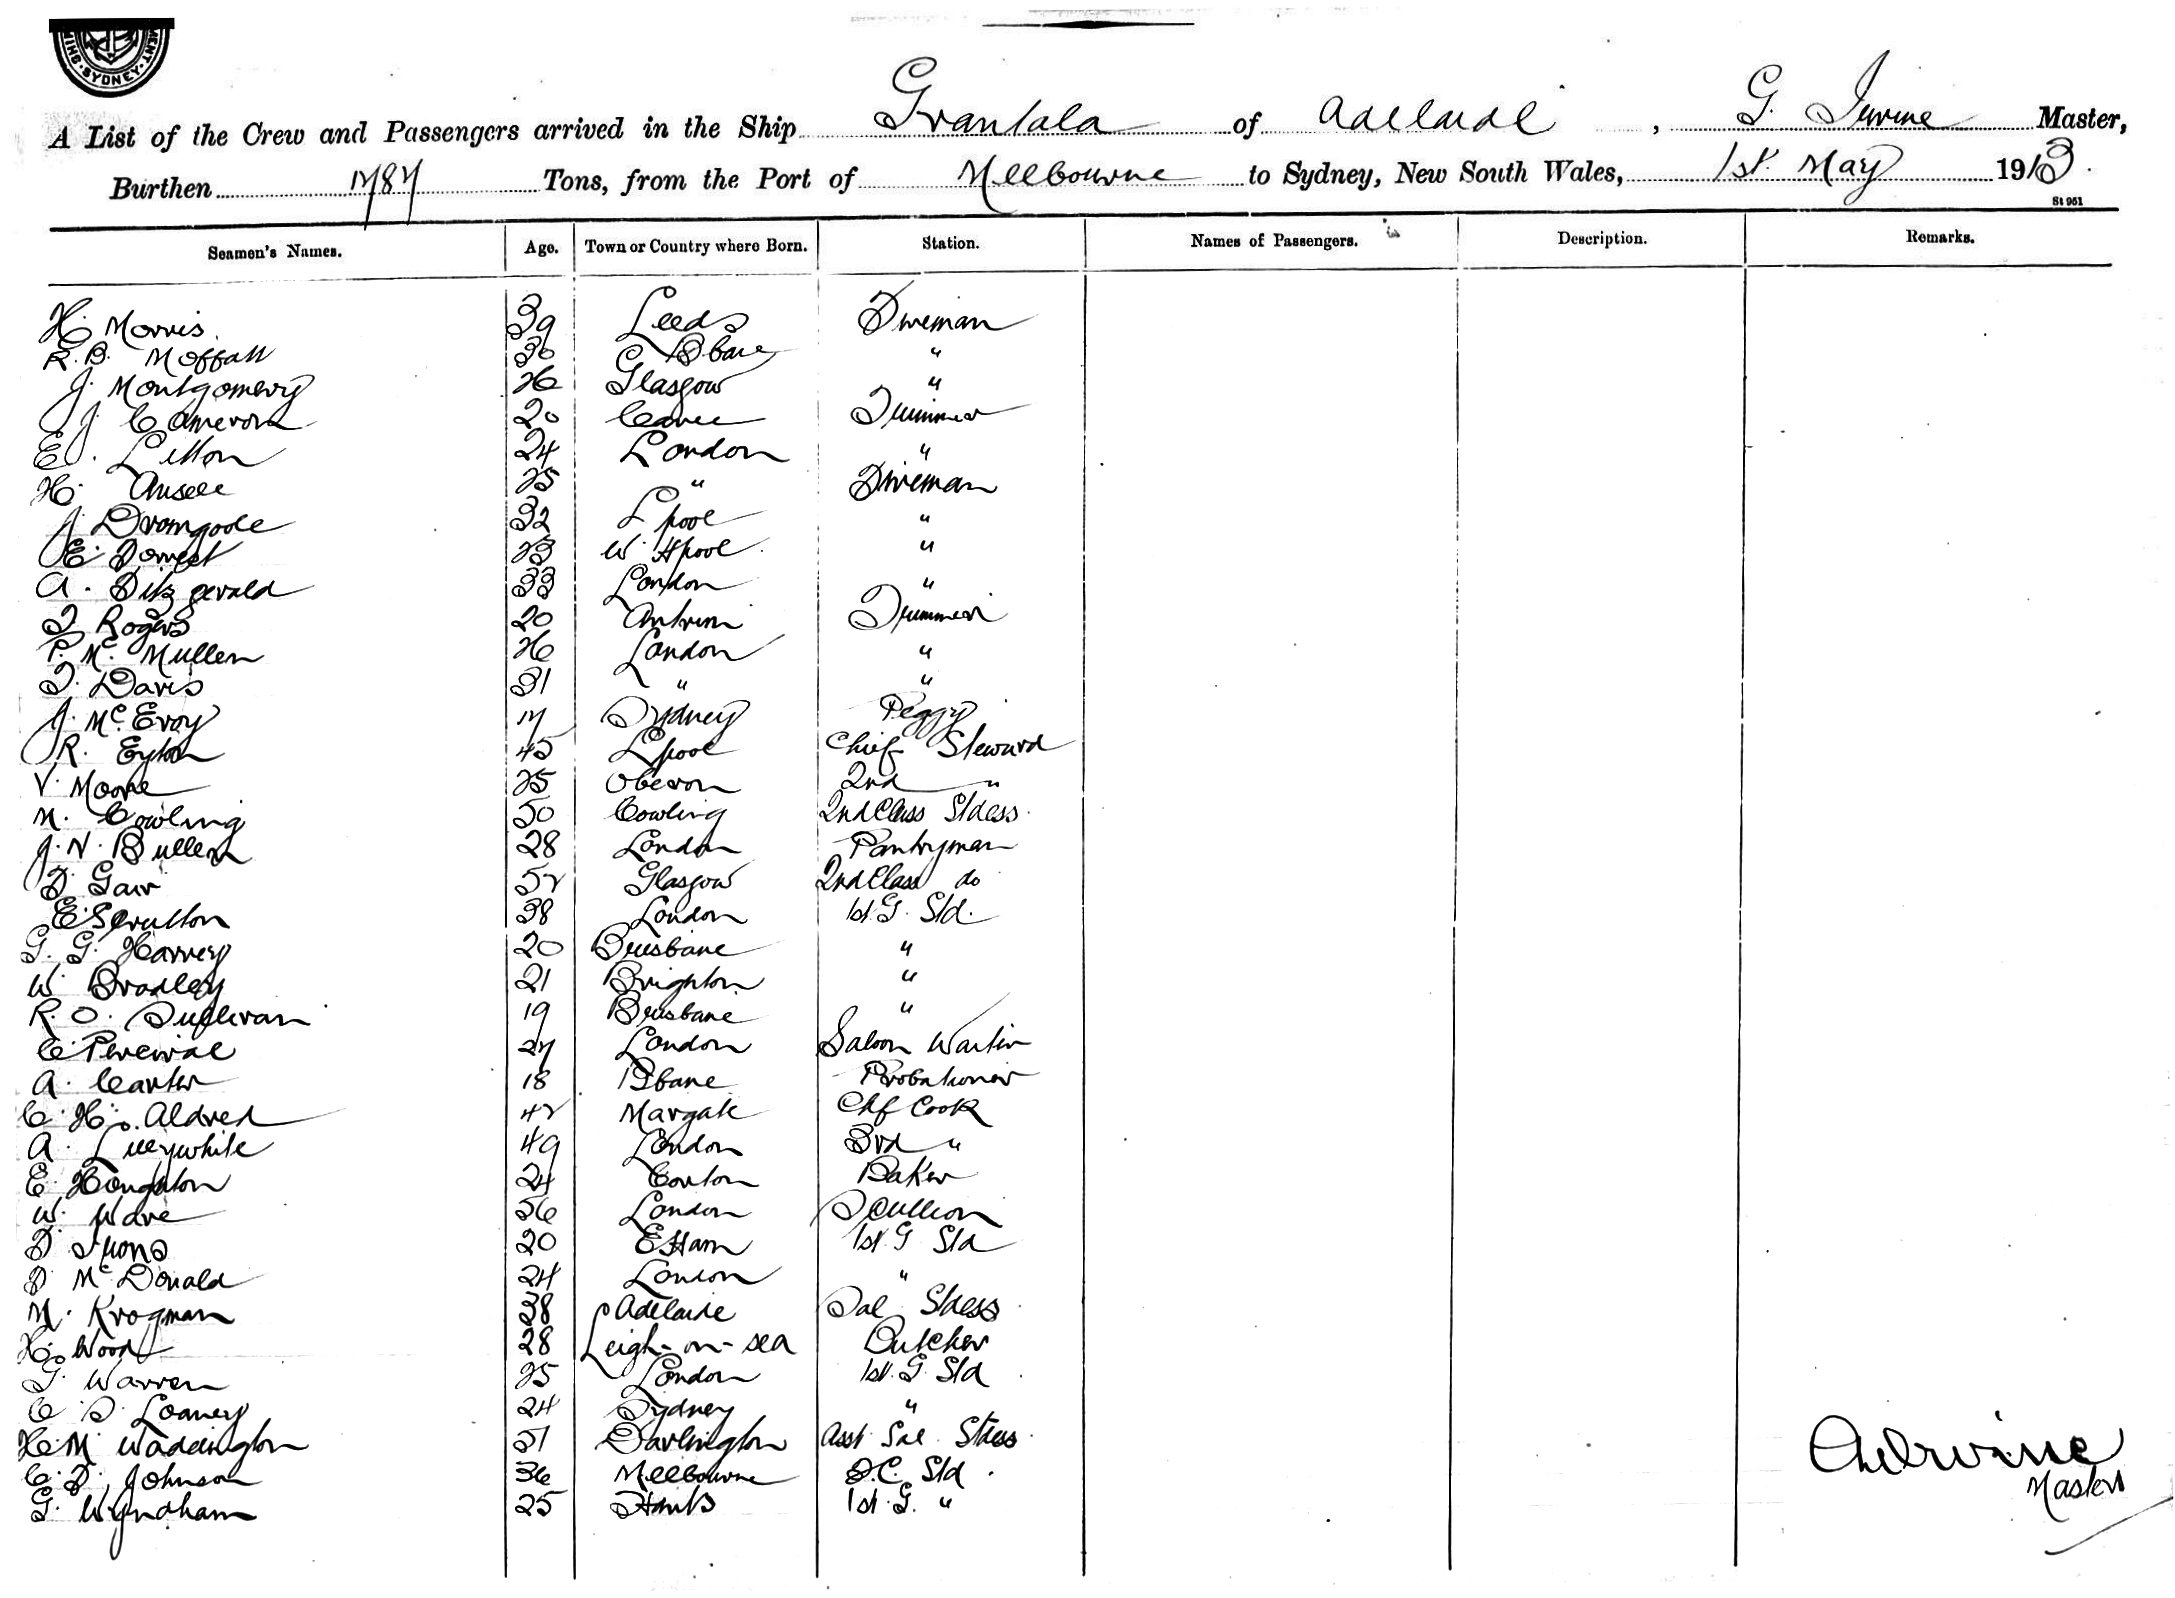 SHIPPING
MENT
SYDNEY
A List of the Crew and Passengers arrived in the Ship Grantala of Adelaide, G. Irvine Master,
Burthen 1787 Tons, from the Port of Melbourne to Sydney, New South Wales, 1st May 1913.
St 951
Seamen's Names. Age. Town or Country where Born. Station. Names of Passengers. Description. Remarks.
H. Morris 39 Leeds Fireman
R. B. Moffatt 30 Bbane "
J. Montgomery 26 Glasgow "
J. Cameron 20 Trimmer
E. Litton 24 London "
H. Ansell 25 " Fireman
J. Dromgoole 32 Lpool "
E. Forrest 23 W. Hpool "
A. Fitzgerald 33 London "
T. Rogers 20 Antrim Trimmer
P. Mc Mullen 26 London "
T. Davis 31 " "
J. McEvoy 17 Sydney Peggy
R. Eyton 45 Lpool Chief Steward
V. Moore 25 Oberon 2nd "
M. Cowling 50 Cowling 2nd Class Stdess
J. N. Bullen 28 London Pantryman
F. Gair 52 Glasgow 2nd Class do
E. Scrutton 38 London 1st G. Std.
G. G. Harvey 20 Brisbane "
W. Bradley 21 Brighton "
R. O. Sullivan 19 Brisbane "
C. Percival 27 London Saloon Waiter
A. Carter 18 Bbane Probationer
C. H. Aldred 42 Margate Chf Cook
A. Lillywhite 49 London 3rd "
E. Houghton 24 Corton Baker
W. Ware 56 London Scullion
F. Irons 20 E Ham 1st G Std
D McDonald 24 London "
M. Krogman 38 Adelaide Sal Stdess
H. Wood 28 Leigh-on-sea Butcher
G. Warren 25 London 1st. G. Std
C. S. Loaney 24 Sydney "
H. M. Waddington 51 Darlington Asst Sal Stdess
C. F. Johnson 36 Melbourne F.C. Std.
G. Wyndham 25 Hants 1st. G. "
G Irvine
Master